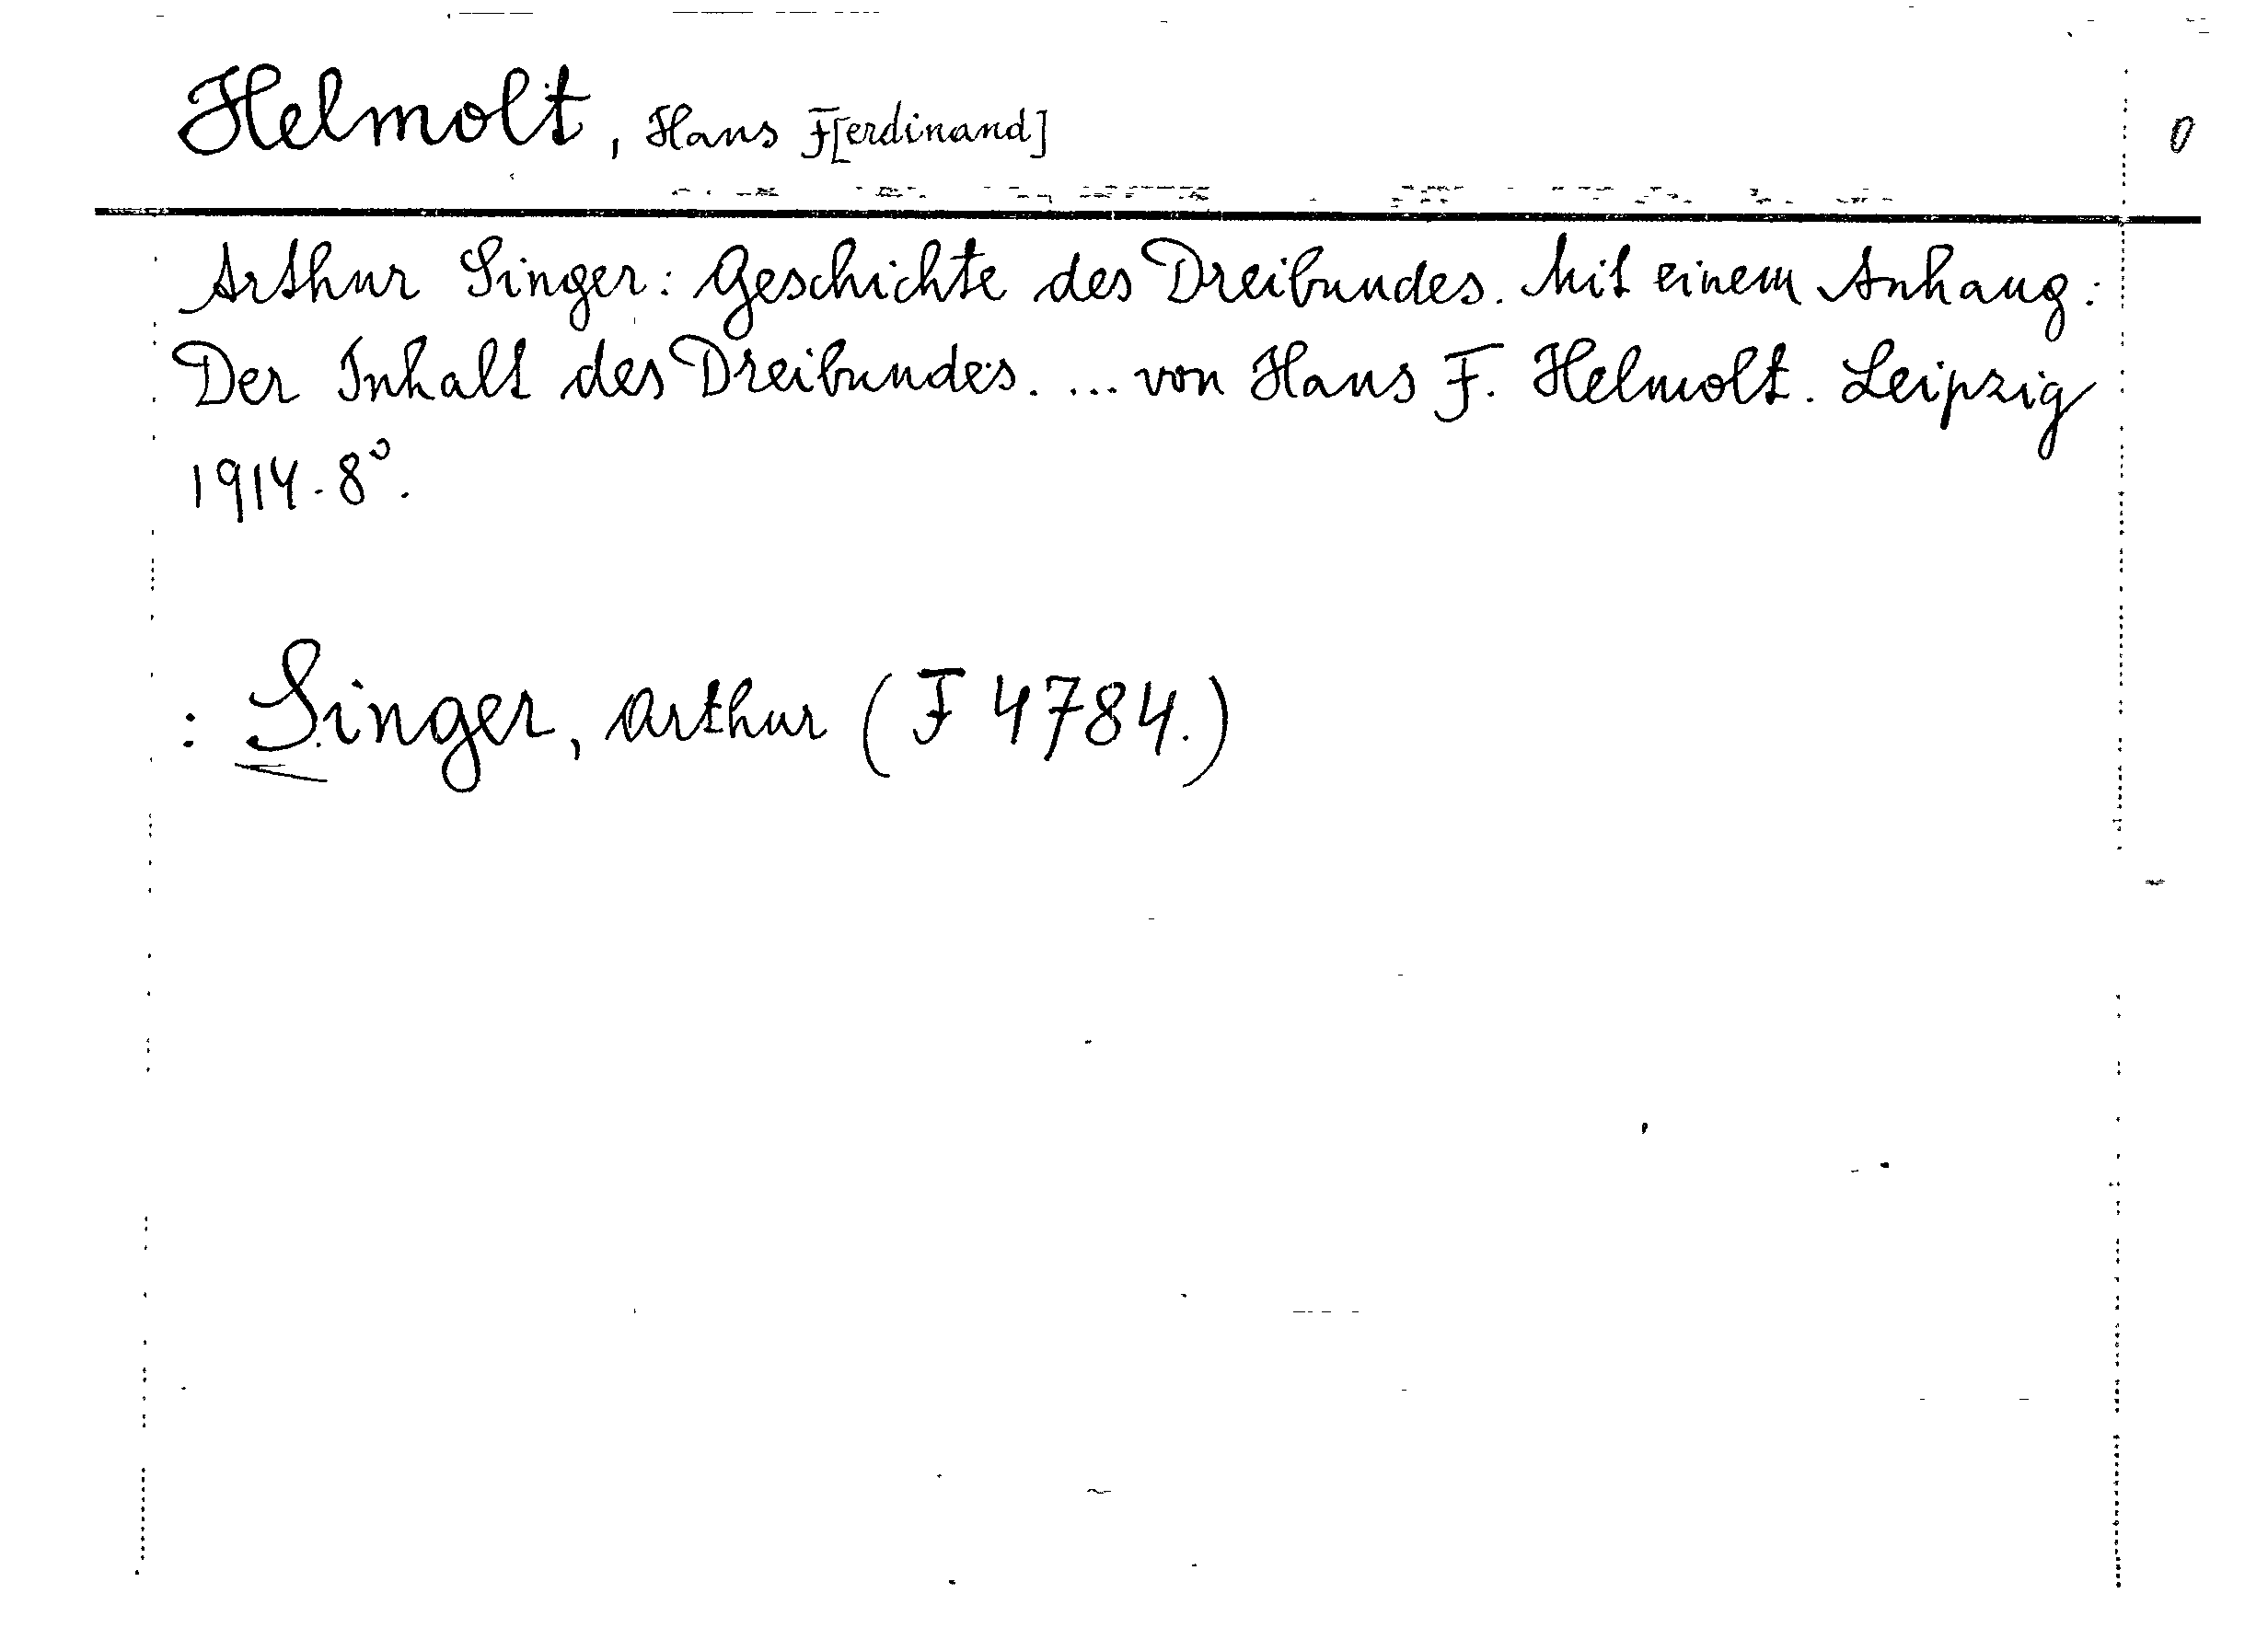 Helmolt, Hans F[erdinand] 0
Arthur Singer: Geschichte des Dreibundes. Mit einem Anhang:
Der Inhalt des Dreibundes. ... von Hans F. Helmolt. Leipzig
1914. 8°.
: Singer, Arthur (F 4784.)